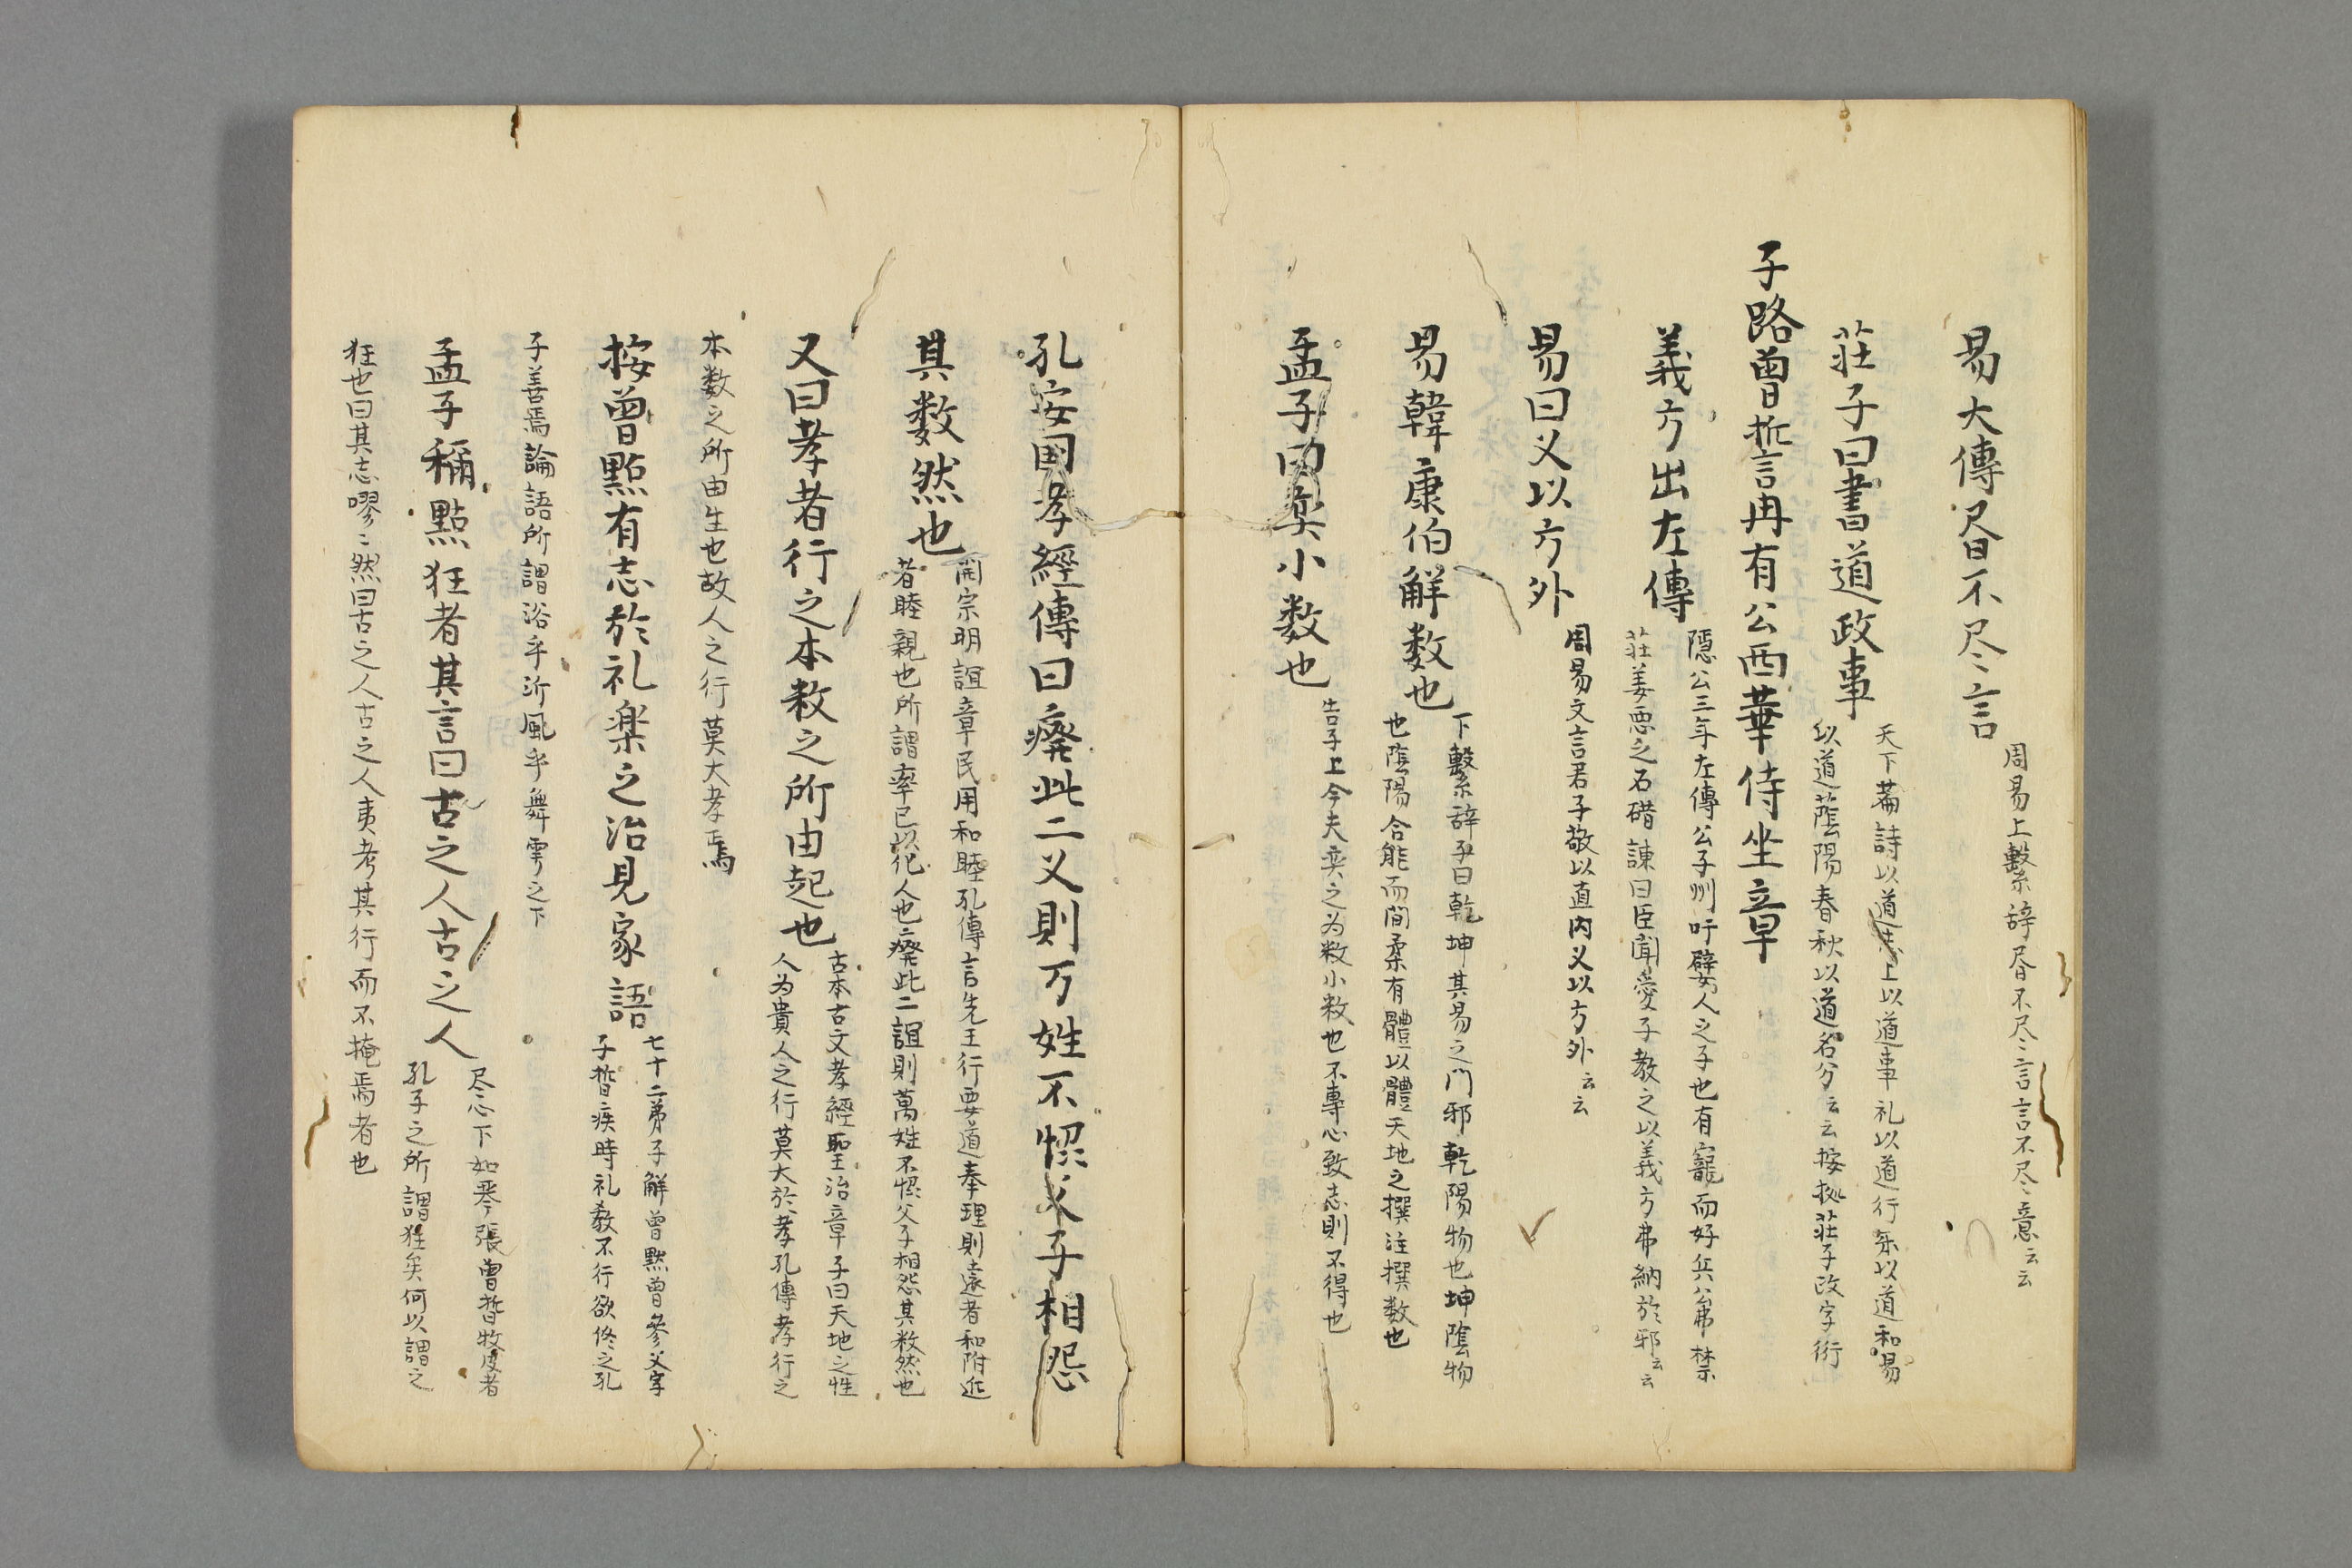 易大傳昼不尽〻言
周易上繫辞昼不尽〻言言不尽〻意云云
莊子曰書道政事
天下萹詩以道志上以道事礼以道行楽以道和易
以道蔭陽春秋以道名分云云按拠莊子政字衍
子路曽晢言冉有公西華侍坐章
義方出左傳
隠公三年左傳公子州吁嬖人之子也有寵而好兵公弗禁
莊姜悪之石碏諌曰臣聞愛子教之以義方弗納於邪云云
易曰义以方外
周易文言君子敬以直内义以方外云云
易韓康伯解数也
下繫辞子曰乾坤其易之門邪乾陽物也坤陰物
也蔭陽合能而間柔有體以體天地之撰注撰数也
孟子曰奕小数也
告子上今夫奕之为数小数也不專心致志則不得也
孔安国孝經傳曰癈此二义則万姓不恊父子相怨
其数然也
開宗明誼章民用和睦孔傳言先王行要道奉理則遠者和附近
者睦親也所謂率已以化人也癈此二誼則萬姓不恊父子相怨其数然也
又曰孝者行之本教之所由起也
古本古文孝經聖治章子曰天地之性
人为貴人之行莫大於孝孔傳孝行之
本数之所由生也故人之行莫大孝焉
按曽點有志於礼楽之治見家語
七十二弟子解曽黙曽参父字
子晢疾時礼教不行欲佟之孔
子善焉論語所謂浴乎沂風乎舞雩之下
孟子稱點狂者其言曰古之人古之人
尽心下如琴張曽晢牧皮者
孔子之所謂狂矣何以謂之
狂也曰其志嘐〻然曰古之人古之人夷考其行而不掩焉者也